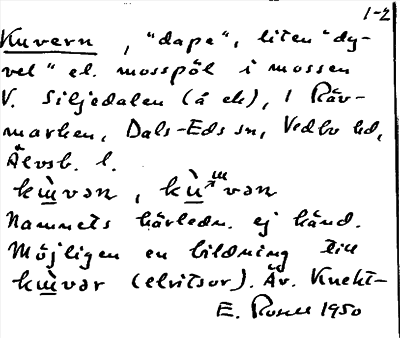 1-2
Kuvern, "dape", liten "dy-
vel" el. mosspöl i mossen
V. Siljedalen (å ek), i Räv-
marken, Dals-Eds sn, Vedbo hd,
Älvsb. l.
Namnets härledn. ej känd.
Möjligen en bildning till
(elritsor). Äv. Knekt-
E. 1950